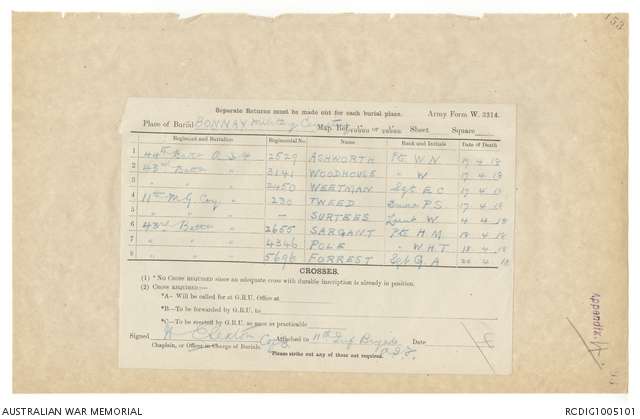 153
Separate Returns must be made out for each burial place. Army Form W. 3314.
Place of Burial BONNAY Military Map Ref. Sheet Square
Regiment and Battalion Regimental No. Name Rank and Initials Date of Death
1 44th Battn A.I.F. 2529 ASHWORTH Pte W.N. 17 4 18
2 43rd Battn " 3141 WOODHOUSE " W 17 4 18
3 " " " 2450 WEETMAN Sgt E C 17 4 18
4 11th M.G. Coy. " 230 TWEED P S 17 4 18
5 " " " — SURTEES Lieut W. 4 4 18
6 43rd Battn " 2655 SARGANT Pte H.M. 18 4 18
7 " " " 4346 POLE " W.H.T 18 4 18
8 " " " 5696 FORREST G A 22 4 18
CROSSES.
(1) * No Cross required since an adequate cross with durable inscription is already in position.
(2) Cross required:—
*A— Will be called for at G.R.U. Office at
*B—To be forwarded by G.R.U. to
*C—To be erected by G.R.U. as soon as practicable
Signed Attached to 11th Inf Brigade Date
Chaplain, or Officer in Charge of Burials. A.I.F.
Please strike out any of these not required.
Appendix
AUSTRALIAN WAR MEMORIAL RCDIG1005101